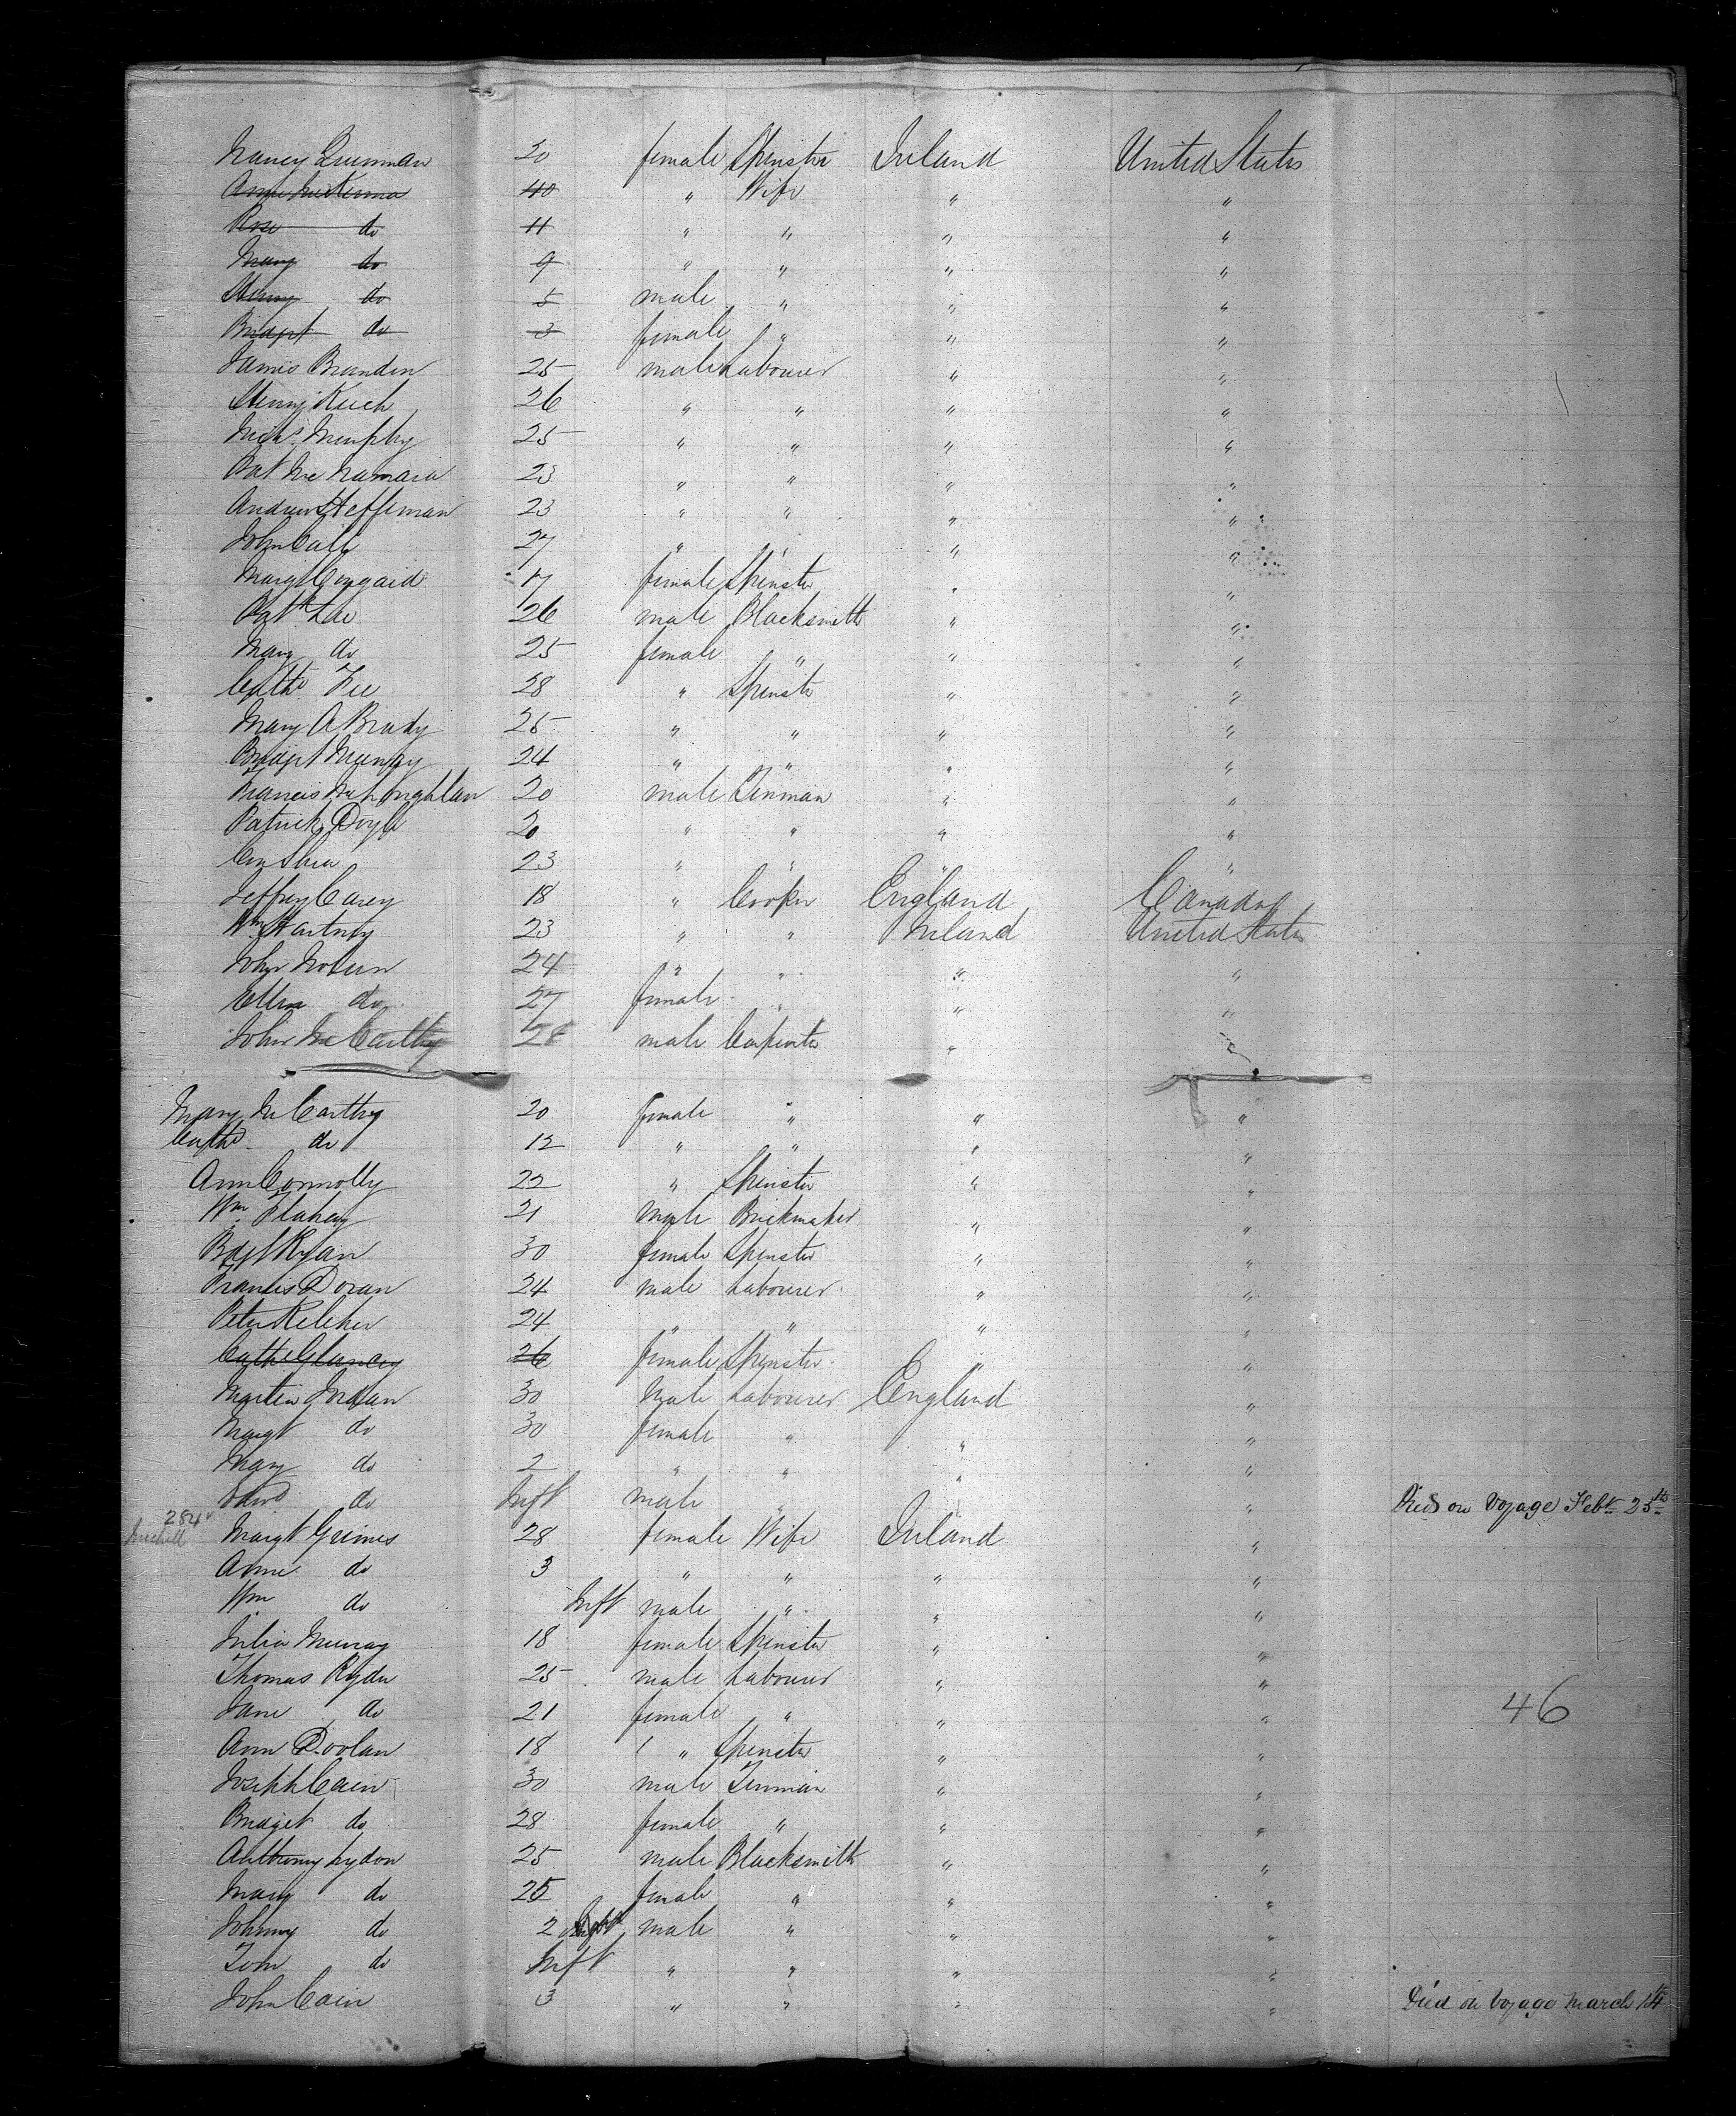 Nancy 20 female Spinster Ireland United States
40 " Wife " "
Rose do 11 " " " "
Mary do 9 " " " "
Henry do 5 male " " "
Bridget do 3 female " " "
James Brandon 25 male Labourer " "
Henry 26 " " " "
Murphy 25 " " " "
Pat McNamara 23 " " " "
Andrew Heffernan 23 " " " "
John 27 " " " "
17 female Spinster " "
Patk Lee 26 male Blacksmith " "
Mary do 25 female " " "
Cathe Fee 28 " Spinster " "
Mary A Brady 25 " " " "
Bridget Murray 24 " " " "
Francis McLoughlan 20 male Tinman " "
Patrick Doyle 20 " " " "
Con Shea 23 " " " "
Jeffrey Carey 18 " Cooper England Canada
Wm Hartney 23 " " Ireland United States
John 24 " " " "
Ellen do 27 female " " "
John McCarthy 28 male Carpenter " "
Mary McCarthy 20 female " " "
Cathe do 12 " " " "
Ann Connolly 22 " Spinster " "
Wm Flahay 21 Male Brickmaker " "
Bdgt Ryan 30 female Spinster " "
Francis Doran 24 male Labourer " "
Peter Keleher 24 " " " "
Cathe Glancey 26 female Spinster " "
Martin Jordan 30 Male Labourer England "
Margt do 30 female " " "
Mary do 2 " " " "
Edwd do Inft male " " " Died on Voyage Feby 25th
284
Margt Grimes 28 female Wife Ireland "
Anne do 3 " " " "
Wm do Inft male " " "
Julia Murray 18 female Spinster " "
Thomas Ryder 25 male Labourer " "
Jane do 21 female " " "
46
Ann Doolan 18 " Spinster " "
Joseph Cain 30 male Tinman " "
Bridget do 28 female " " "
Anthony Lydon 25 male Blacksmith " "
Mary do 25 female " " "
Johnny do 2 male " " "
Tom do Inft " " " "
John Cain 3 " " " " Died on Voyage March 14